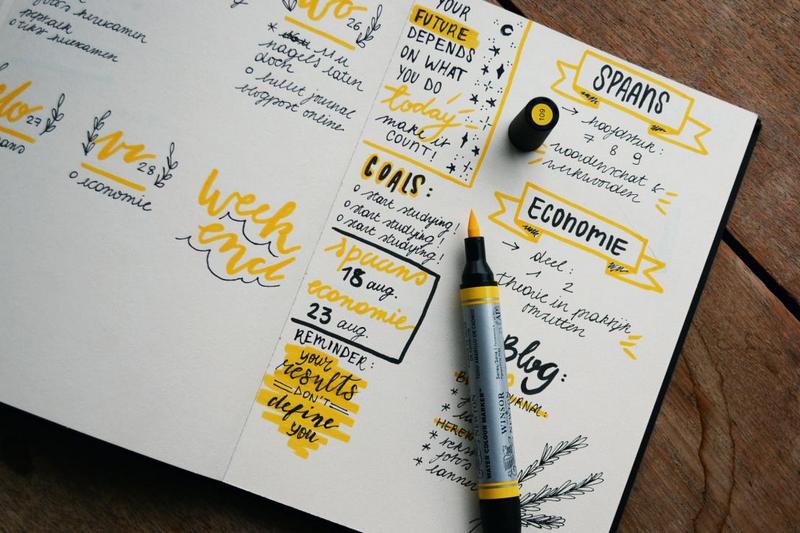 herexamen
herexamen
wo 26
nagels laten
doen
o bullet journal
blogpost online
27
vr 28
o economie
week
end
YOUR
FUTURE
DEPENDS
ON WHAT
YOU DO
today
make it
COUNT!
GOALS:
o start studying!
o start studying!
o start studying!
spaans
18 aug.
economie
23 aug.
REMINDER:
your
results
DON'T
define
you
109
SPAANS
→ hoofdstuk:
7 8 9
woordenschat &
werkwoorden
ECONOMIE
→ deel:
1 2
theorie in praktijk
omzetten
Blog:
WATER COLOUR MARKER
WINSOR